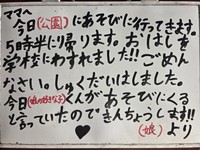 ママへ
今日(公園)にあそびに行ってきます。
5時半に帰ります。おはしを
学校にわすれました!!ごめん
なさい。しゅくだいはしました。
今日(娘の好きな子)くんがあそびにくる
と言っていたのできんちょうします!!
♥(娘)より